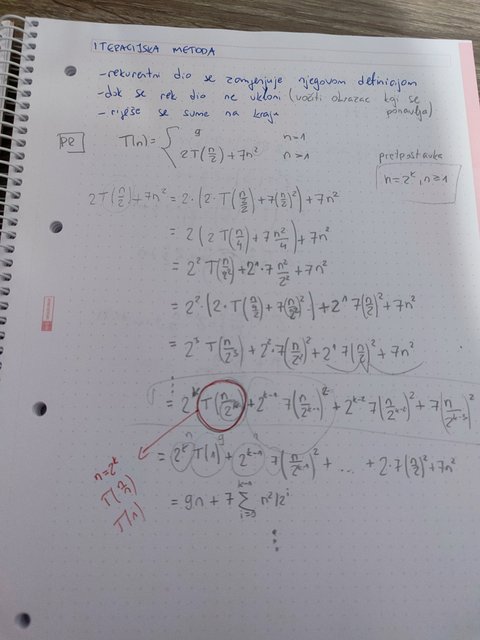 ITERACIJSKA METODA
- rekurentni dio se zamjenjuje njegovom definicijom
- dok se rek dio ne ukloni (uočiti obrazac koji se ponavlja)
- riješe se sume na kraju
PR T(n) = { 9 n=1
2T(n/2) + 7n² n>1
pretpostavka
n=2^k, n≥1
2T(n/2) + 7n² = 2·(2·T((n/2)/2) + 7(n/2)²) + 7n²
= 2(2T(n/4) + 7 n²/4) + 7n²
= 2² T(n/2²) + 2¹·7 n²/2² + 7n²
= 2²·(2·T((n/4)/2) + 7(n/2²)²) + 2¹ 7(n/2)² + 7n²
= 2³ T(n/2³) + 2²·7(n/2²)² + 2¹ 7(n/2)² + 7n²
⋮
= 2^k T(n/2^k) + 2^(k-1) 7(n/2^(k-1))² + 2^(k-2) 7(n/2^(k-2))² + 7(n/2^(k-3))²
n 9
= 2^k T(1) + 2^(k-1) 7(n/2^(k-1))² + ... + 2·7(n/2)² + 7n²
n=2^k
T(n/n)
T(1)
= 9n + 7 Σ n²/2^i
⋮